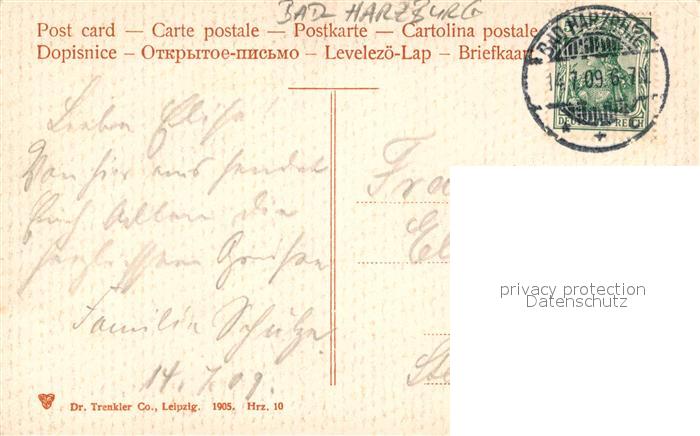 BAD HARZBURG
Post card — Carte postale — Postkarte — Cartolina postale
Dopisnice — Открытое-письмо — Levelezö-Lap — Briefkaart
BAD HARZBURG
14.7.09.6-7N
DEUTSCHES REICH
Lieben Elisa!
Von hier aus sendet
Euch Allen die
herzlichsten Grüße
Familie Schulze
14.7.09.
Fra
El
Ste
privacy protection
Datenschutz
Dr. Trenkler Co., Leipzig. 1905. Hrz. 10